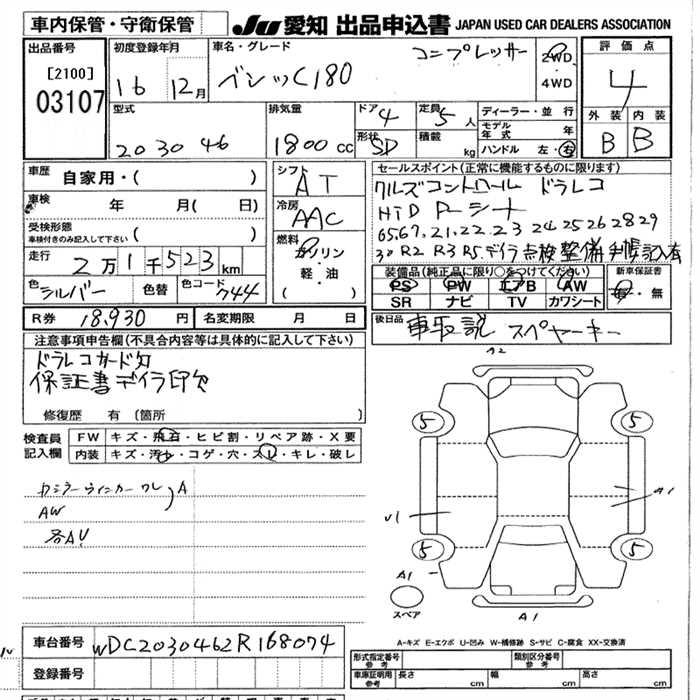 車内保管・守衛保管
JU 愛知 出品申込書 JAPAN USED CAR DEALERS ASSOCIATION
出品番号
[2100]
03107
初度登録年月
16 12月
車名・グレード
ベンツC180 コンプレッサー
2WD
4WD
評価点
4
型式
203046
排気量
1800 cc
ドア
4
定員
5 人
形状
SD
積載
kg
ディーラー・並行
モデル年式 年
ハンドル 左・右
外装 内装
B B
車歴
自家用・( )
車検
年 月( 日)
受検形態
車検付きのみ記入して下さい ( )
走行
2万1千523km
色
シルバー
色替
色コード
744
シフト
AT
冷房
AAC
燃料
ガソリン
軽・油
( )
セールスポイント(正常に機能するものに限ります)
クルズコントロール ドラレコ
HID Pシート
20.21.22.23 24 25 26 28 29
30 R2 R3 R5.デイラ点検整備手帳記入有
装備品(純正品に限り○をつけてください)
PS PW エアB AW
SR ナビ TV カワシート
新車保証書
有・無
R券 18,930 円 名変期限 月 日
後日品
車取説 スペヤーキー
注意事項申告欄(不具合内容等は具体的に記入して下さい)
ドラレコカード欠
保証書デイラ印欠
修復歴 有 (箇所 )
検査員
記入欄
FW キズ・飛石・ヒビ割・リペア跡・X要
内装 キズ・汚レ・コゲ・穴・スレ・キレ・破レ
カミラーウィンカーワレ A
AW
各AU
A2
5 5
U1 A1
5 5
A1
スペア
A1
A-キズ E-エクボ U-凹み W-補修跡 S-サビ C-腐食 XX-交換済
車台番号 WDC2030462R168074
登録番号
形式指定番号
参考
類別区分番号
参考
車庫証明用
参考
長さ cm 幅 cm 高さ cm